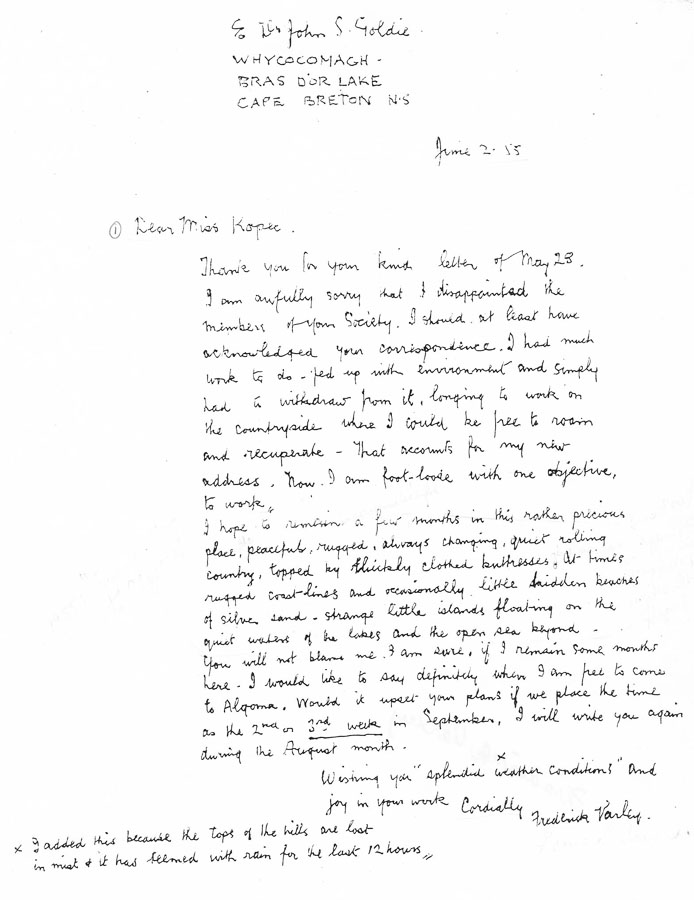 c/o Dr John S. Goldie.
WHYCOCOMAGH -
BRAS D'OR LAKE
CAPE BRETON N.S
June 2. 55
① Dear Miss Kopec.
Thank you for your kind letter of May 28.
I am awfully sorry that I disappointed the
members of your Society. I should at least have
acknowledged your correspondence. I had much
work to do - fed up with environment and simply
had to withdraw from it, longing to work on
the countryside where I could be free to roam
and recuperate - That accounts for my new
address. Now I am foot-loose with one objective,
to work.
I hope to remain a few months in this rather precious
place, peaceful, rugged, always changing, quiet rolling
country, topped by thickly clothed buttresses. At times
rugged coast-lines and occasionally little hidden beaches
of silver sand - strange little islands floating on the
quiet waters of the lakes and the open sea beyond -
You will not blame me I am sure, if I remain some months
here - I would like to say definitely when I am free to come
to Algoma. Would it upset your plans if we place the time
as the 2nd or 3rd week in September, I will write you again
during the August month.
Wishing you "splendid x weather conditions" and
joy in your work Cordially Frederick Varley.
x I added this because the tops of the hills are lost
in mist & it has teemed with rain for the last 12 hours